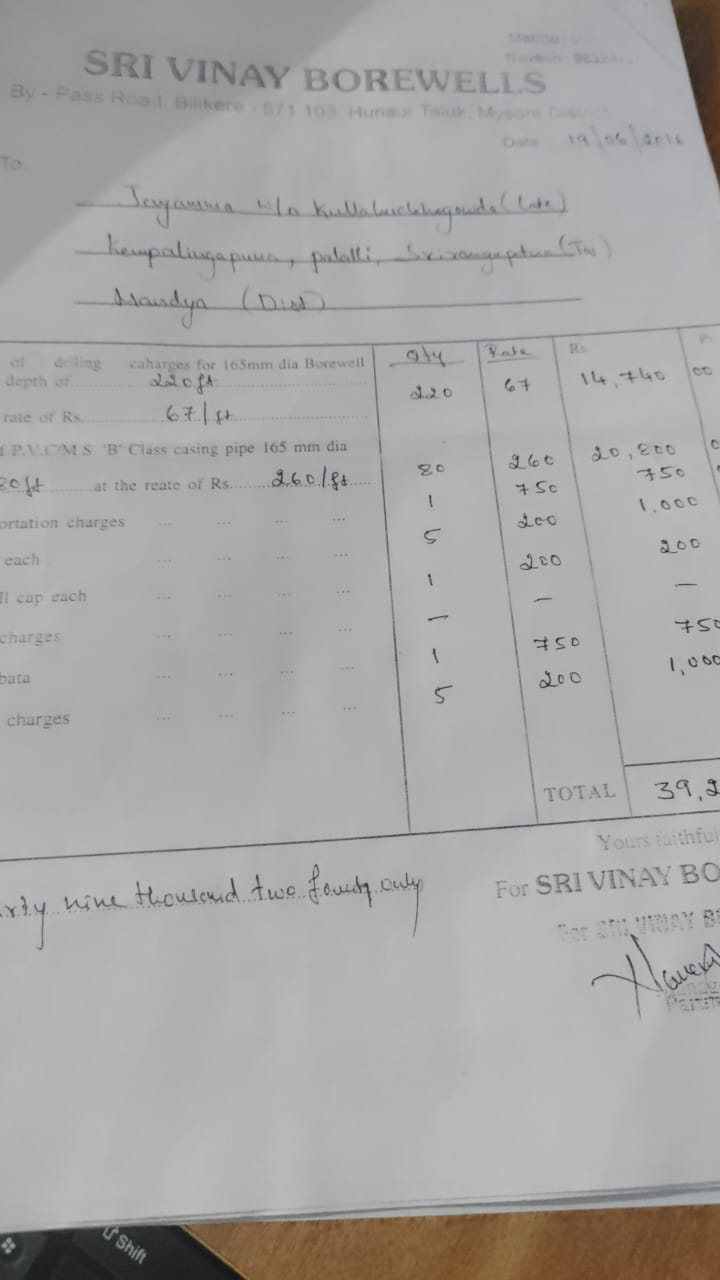 SRI VINAY BOREWELLS
By - Pass Road, Bilikere - 571 103, Hunsur Taluk, Mysore District
Date 19/06/2016
To
Jayamma w/o (Late)
Kempalingapura, palalli, (Tq)
Mandya (Dist)
Qty Rate Rs. P.
of driling caharges for 165mm dia Borewell
depth of 220ft 220 67 14,740 00
rate of Rs. 67/ft
P.V.C/M.S 'B' Class casing pipe 165 mm dia
at the reate of Rs. 260/ft 80 260 20,800
ortation charges ... ... ... ... 1 750 750
each ... ... ... ... 5 200 1,000
ll cap each ... ... ... ... 1 200 200
charges ... ... ... ... — — —
bata ... ... ... ... 1 750 750
charges ... ... ... ... 5 200 1,000
TOTAL 39,2
nine thousand two only
Yours faithful
For SRI VINAY BO
For SRI VINAY B
Shift